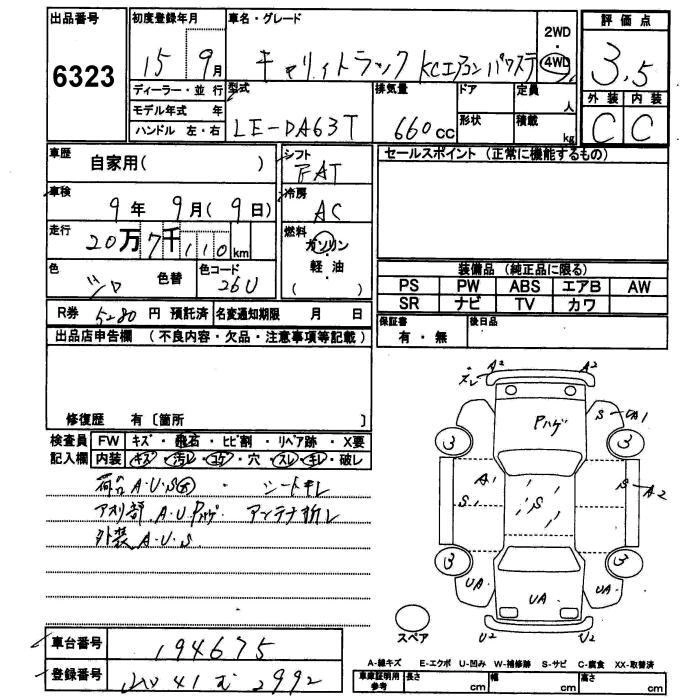 出品番号 初度登録年月 車名・グレード 2WD・4WD 評価点
6323
15年 9月
キャリイトラック KCエアコン パワステ
3.5
外装 内装
C C
ディーラー・並行
モデル年式 年
ハンドル 左・右
型式
LE-DA63T
排気量
660cc
ドア
形状
定員 人
積載 kg
車歴 自家用( )
シフト
FAT
セールスポイント (正常に機能するもの)
車検
9年 9月( 9日)
冷房
AC
走行
20万7千110km
燃料
ガソリン
軽油
( )
色 色替
色コード
26U
装備品 (純正品に限る)
PS PW ABS エアB AW
SR ナビ TV カワ
R券 5280 円 預託済 名変通知期限 月 日
保証書
有・無
後日品
出品店申告欄 (不良内容・欠品・注意事項等記載)
修復歴 有 〔箇所 〕
検査員 FW キズ・飛石・ヒビ割・リペア跡・X要
記入欄 内装 キズ・汚レ・コゲ・穴・スレ・キレ・破レ
荷台 A・U・S ・シートキレ
アオリ部 A・U Pハゲ アンテナ折レ
外装 A・U・S
ズレ A2 A2
Pハゲ
S UA1
3 3
A1
S1 S S A2
3 3
UA UA UA
U2 U2
スペア
車台番号 194675
登録番号 2992
A-線キズ E-エクボ U-凹み W-補修跡 S-サビ C-腐食 XX-取替済
車庫証明用参考 長さ cm 幅 cm 高さ cm